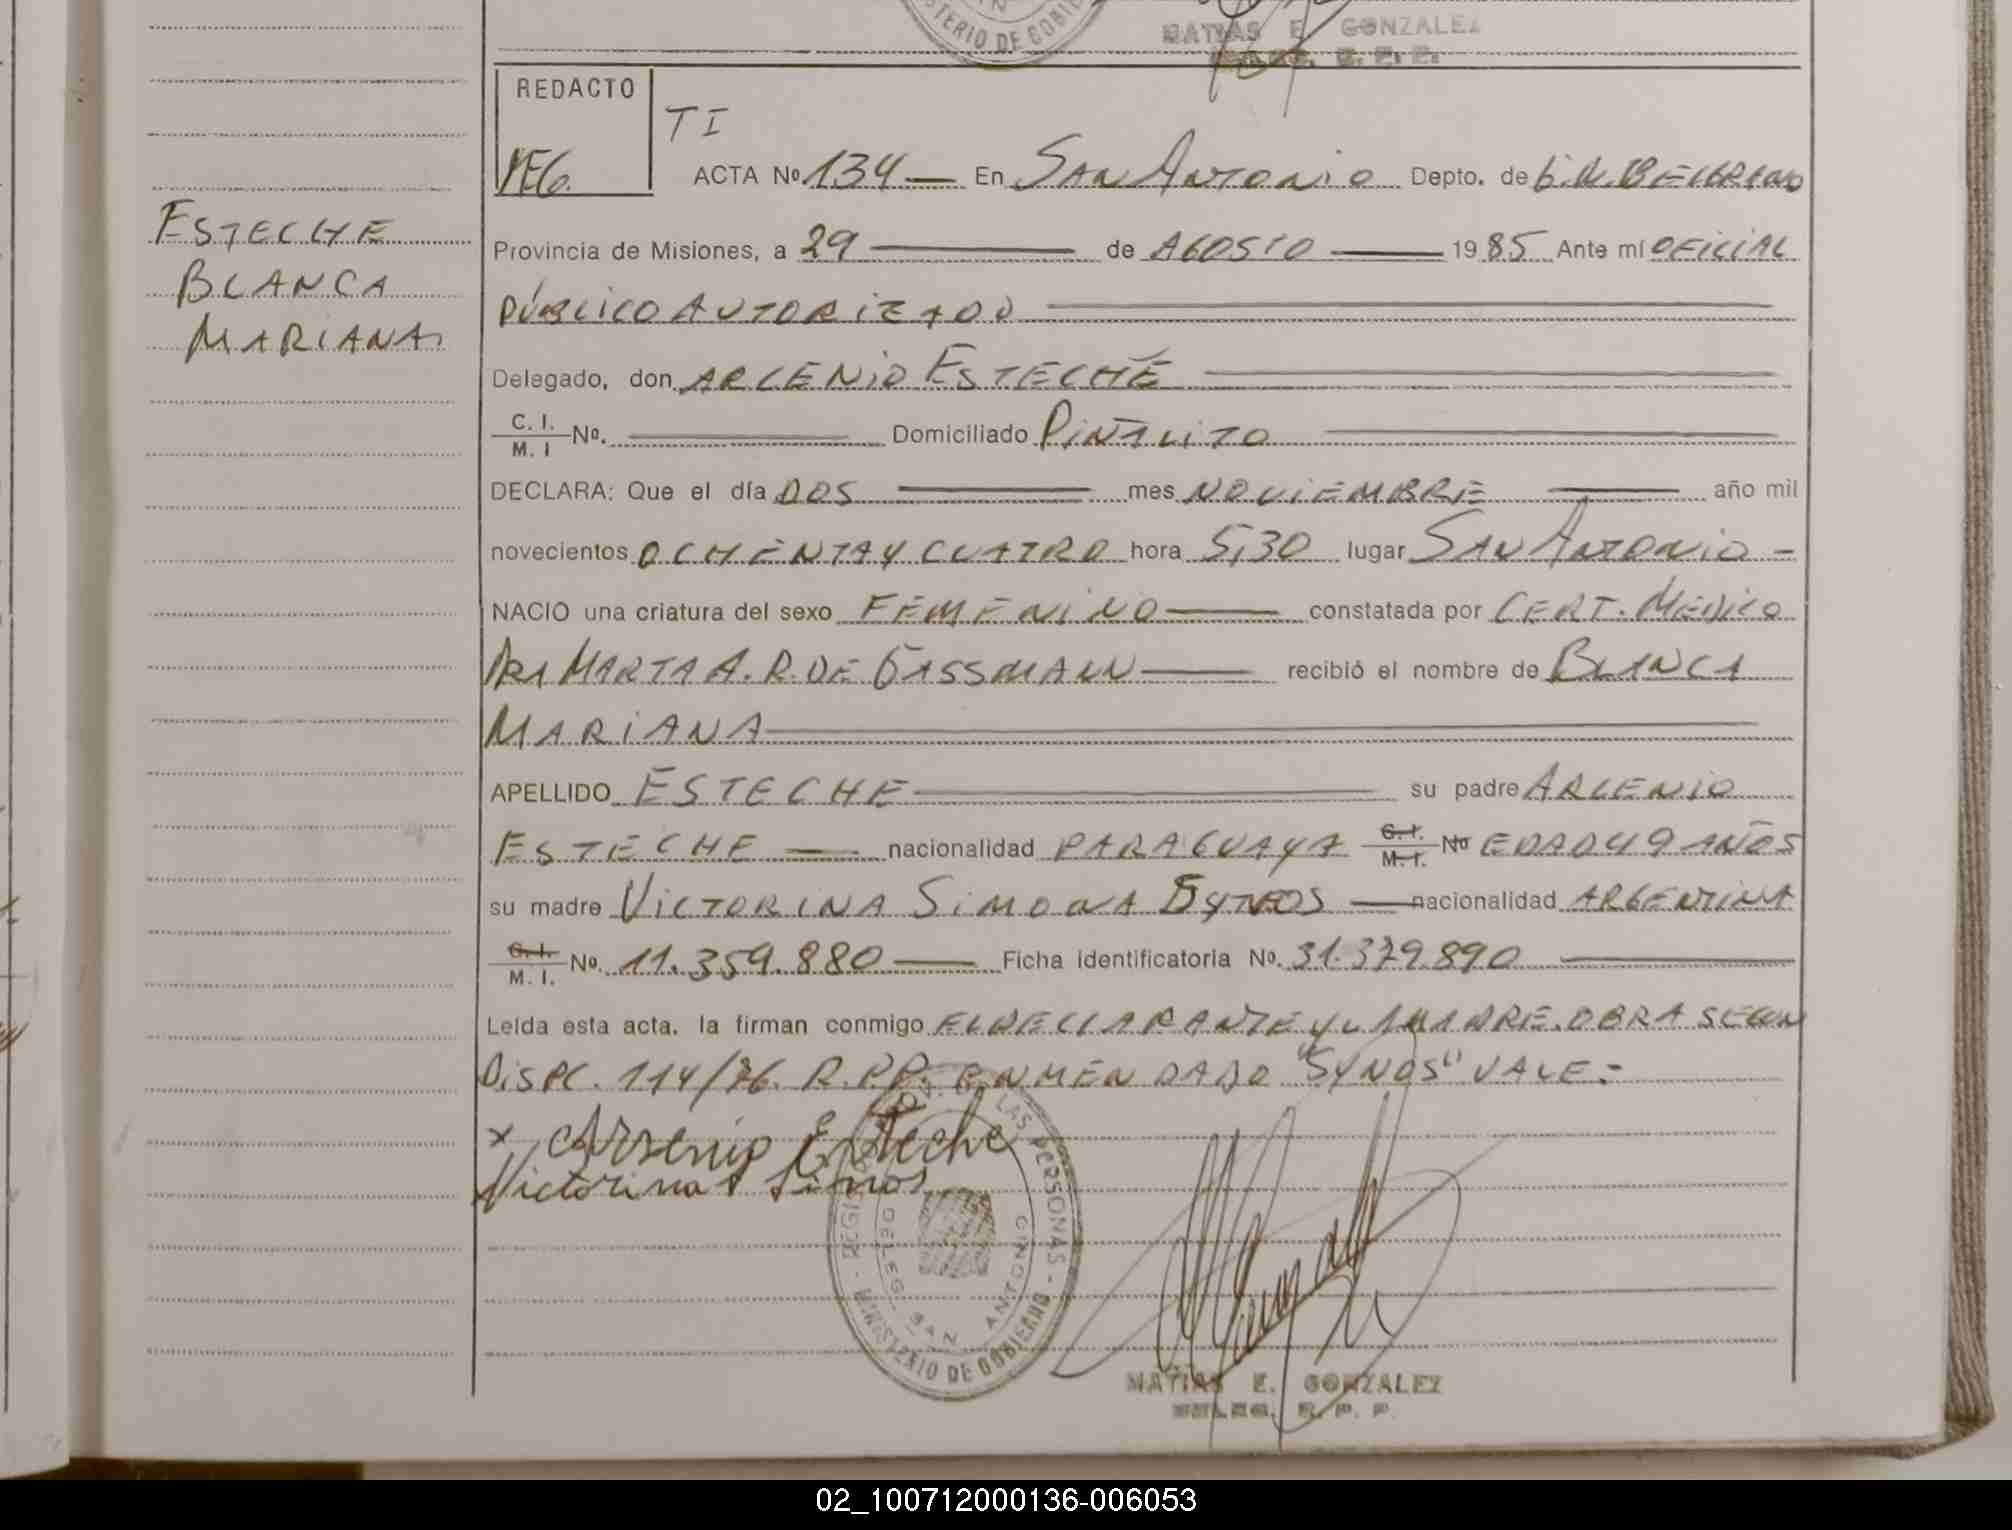 MINISTERIO DE GOBIE
MATIAS E. GONZALEZ
R. P. P.
REDACTO
MEG.
TI
ACTA Nº 134 — En SAN ANTONIO Depto. de G. M. BELGRANO
ESTECHE
BLANCA
MARIANA
Provincia de Misiones, a 29 — de AGOSTO — 1985 Ante mí OFICIAL
PÚBLICO AUTORIZADO
Delegado, don ARCENIO ESTECHE
C. I.
M. I Nº. — Domiciliado PIÑALITO
DECLARA: Que el día DOS — mes NOVIEMBRE — año mil
novecientos OCHENTA Y CUATRO hora 5,30 lugar SAN ANTONIO -
NACIO una criatura del sexo FEMENINO — constatada por CERT. MEDICO
DRA MARTA A. R. DE GASSMANN — recibió el nombre de BLANCA
MARIANA
APELLIDO ESTECHE — su padre ARCENIO
ESTECHE — nacionalidad PARAGUAYA C. I. M. I. Nº EDAD 49 AÑOS
su madre VICTORINA SIMONA SYNOS — nacionalidad ARGENTINA
C. I.
M. I. Nº. 11.359.880 — Ficha identificatoria No. 31.379.890
Leída esta acta, la firman conmigo EL DECLARANTE Y LA MADRE. OBRA SEGUN
DISPC. 114/76. R.P.P. ENMENDADO "SYNOS" VALE.-
x Arsenio Esteche
Victorina S Sinos
DE LAS PERSONAS
DELEG. SAN ANTONIO
MINISTERIO DE GOBIERNO
MATIAS E. GONZALEZ
DELEG. R. P. P.
02_100712000136-006053